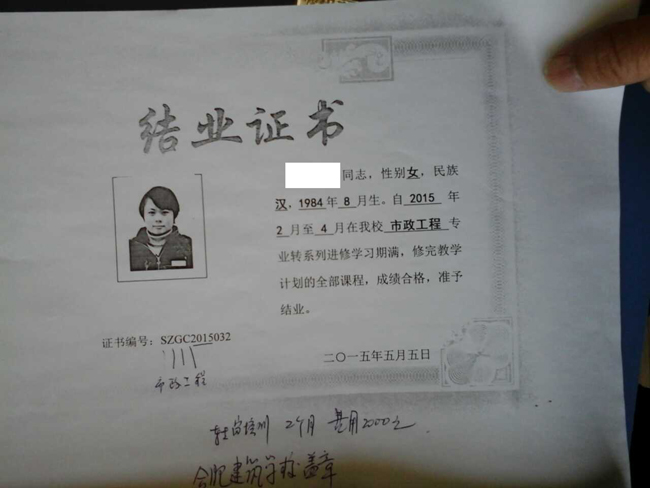 结业证书
同志，性别女，民族
汉，1984年8月生。自2015年
2月至4月在我校市政工程专
业转系列进修学习期满，修完教学
计划的全部课程，成绩合格，准予
结业。
证书编号：SZGC2015032
二〇一五年五月五日
市政工程
培训 2个月 费用2000元
合肥建筑学校盖章